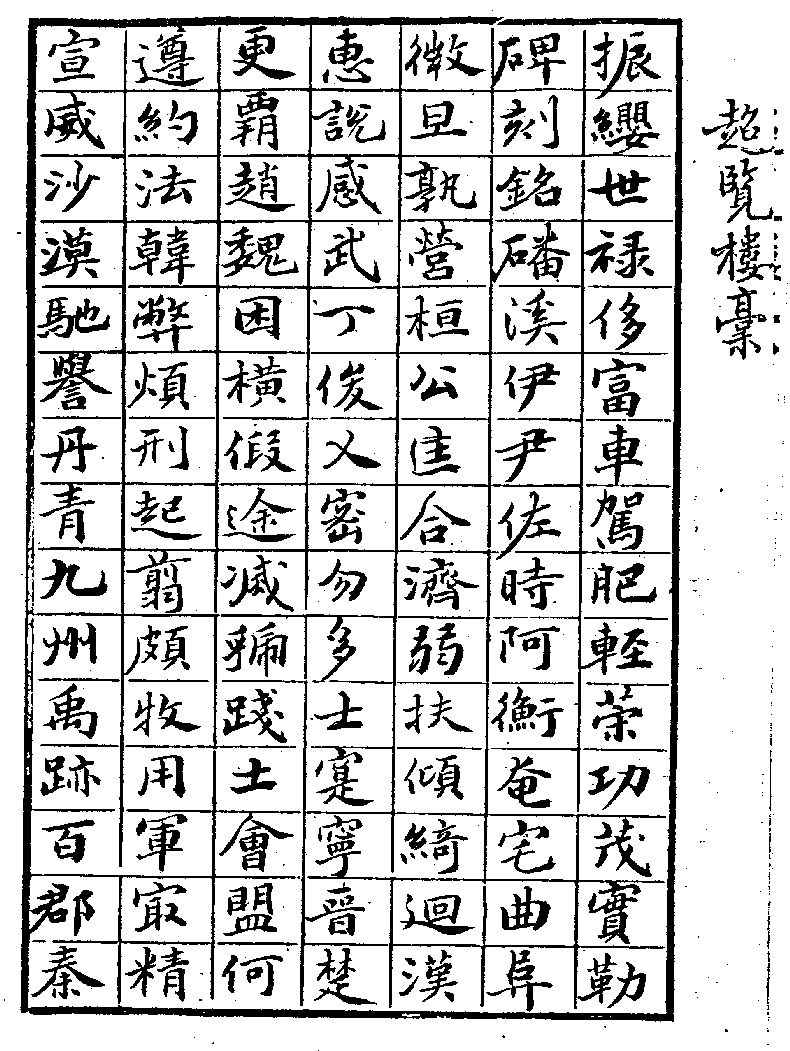 超覽樓稾
振纓世禄侈富車駕肥輕策功茂實勒
碑刻銘磻溪伊尹佐時阿衡奄宅曲阜
微旦孰營桓公匡合濟弱扶傾綺迴漢
惠說感武丁俊乂密勿多士寔寧晉楚
更覇趙魏困橫假途滅虢踐土會盟何
遵約法韓弊煩刑起翦頗牧用軍㝡精
宣威沙漠馳譽丹青九州禹跡百郡秦